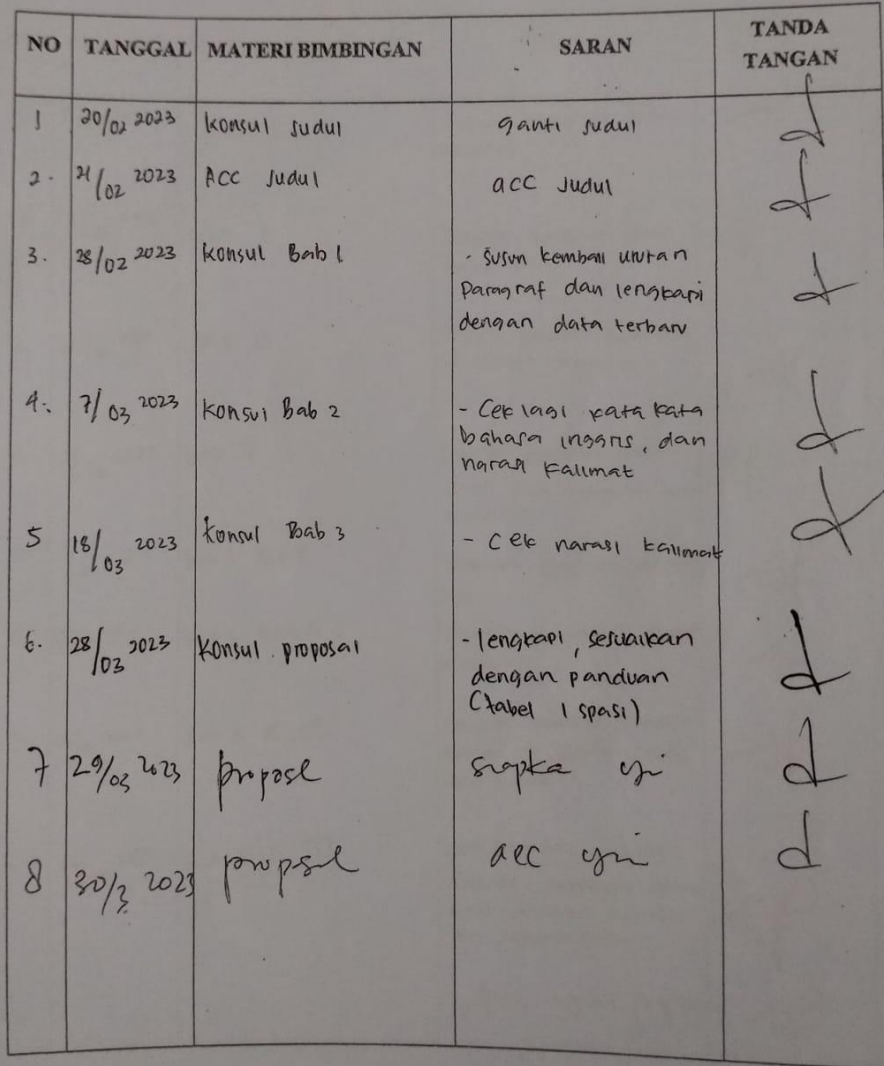 NO TANGGAL MATERI BIMBINGAN SARAN TANDA TANGAN
1 20/02 2023 Konsul Judul ganti Judul
2. 21/02 2023 ACC Judul acc Judul
3. 28/02 2023 Konsul Bab 1 - Susun kembali urutan
paragraf dan lengkapi
dengan data terbaru
4. 7/03 2023 Konsul Bab 2 - Cek lagi kata kata
bahasa inggris, dan
narasi kalimat
5 18/03 2023 Konsul Bab 3 - Cek narasi kalimat
6. 28/03 2023 Konsul proposal - lengkapi, sesuaikan
dengan panduan
(tabel 1 spasi)
7 29/03 2023 proposl siapka
8 30/3 2023 propsl acc